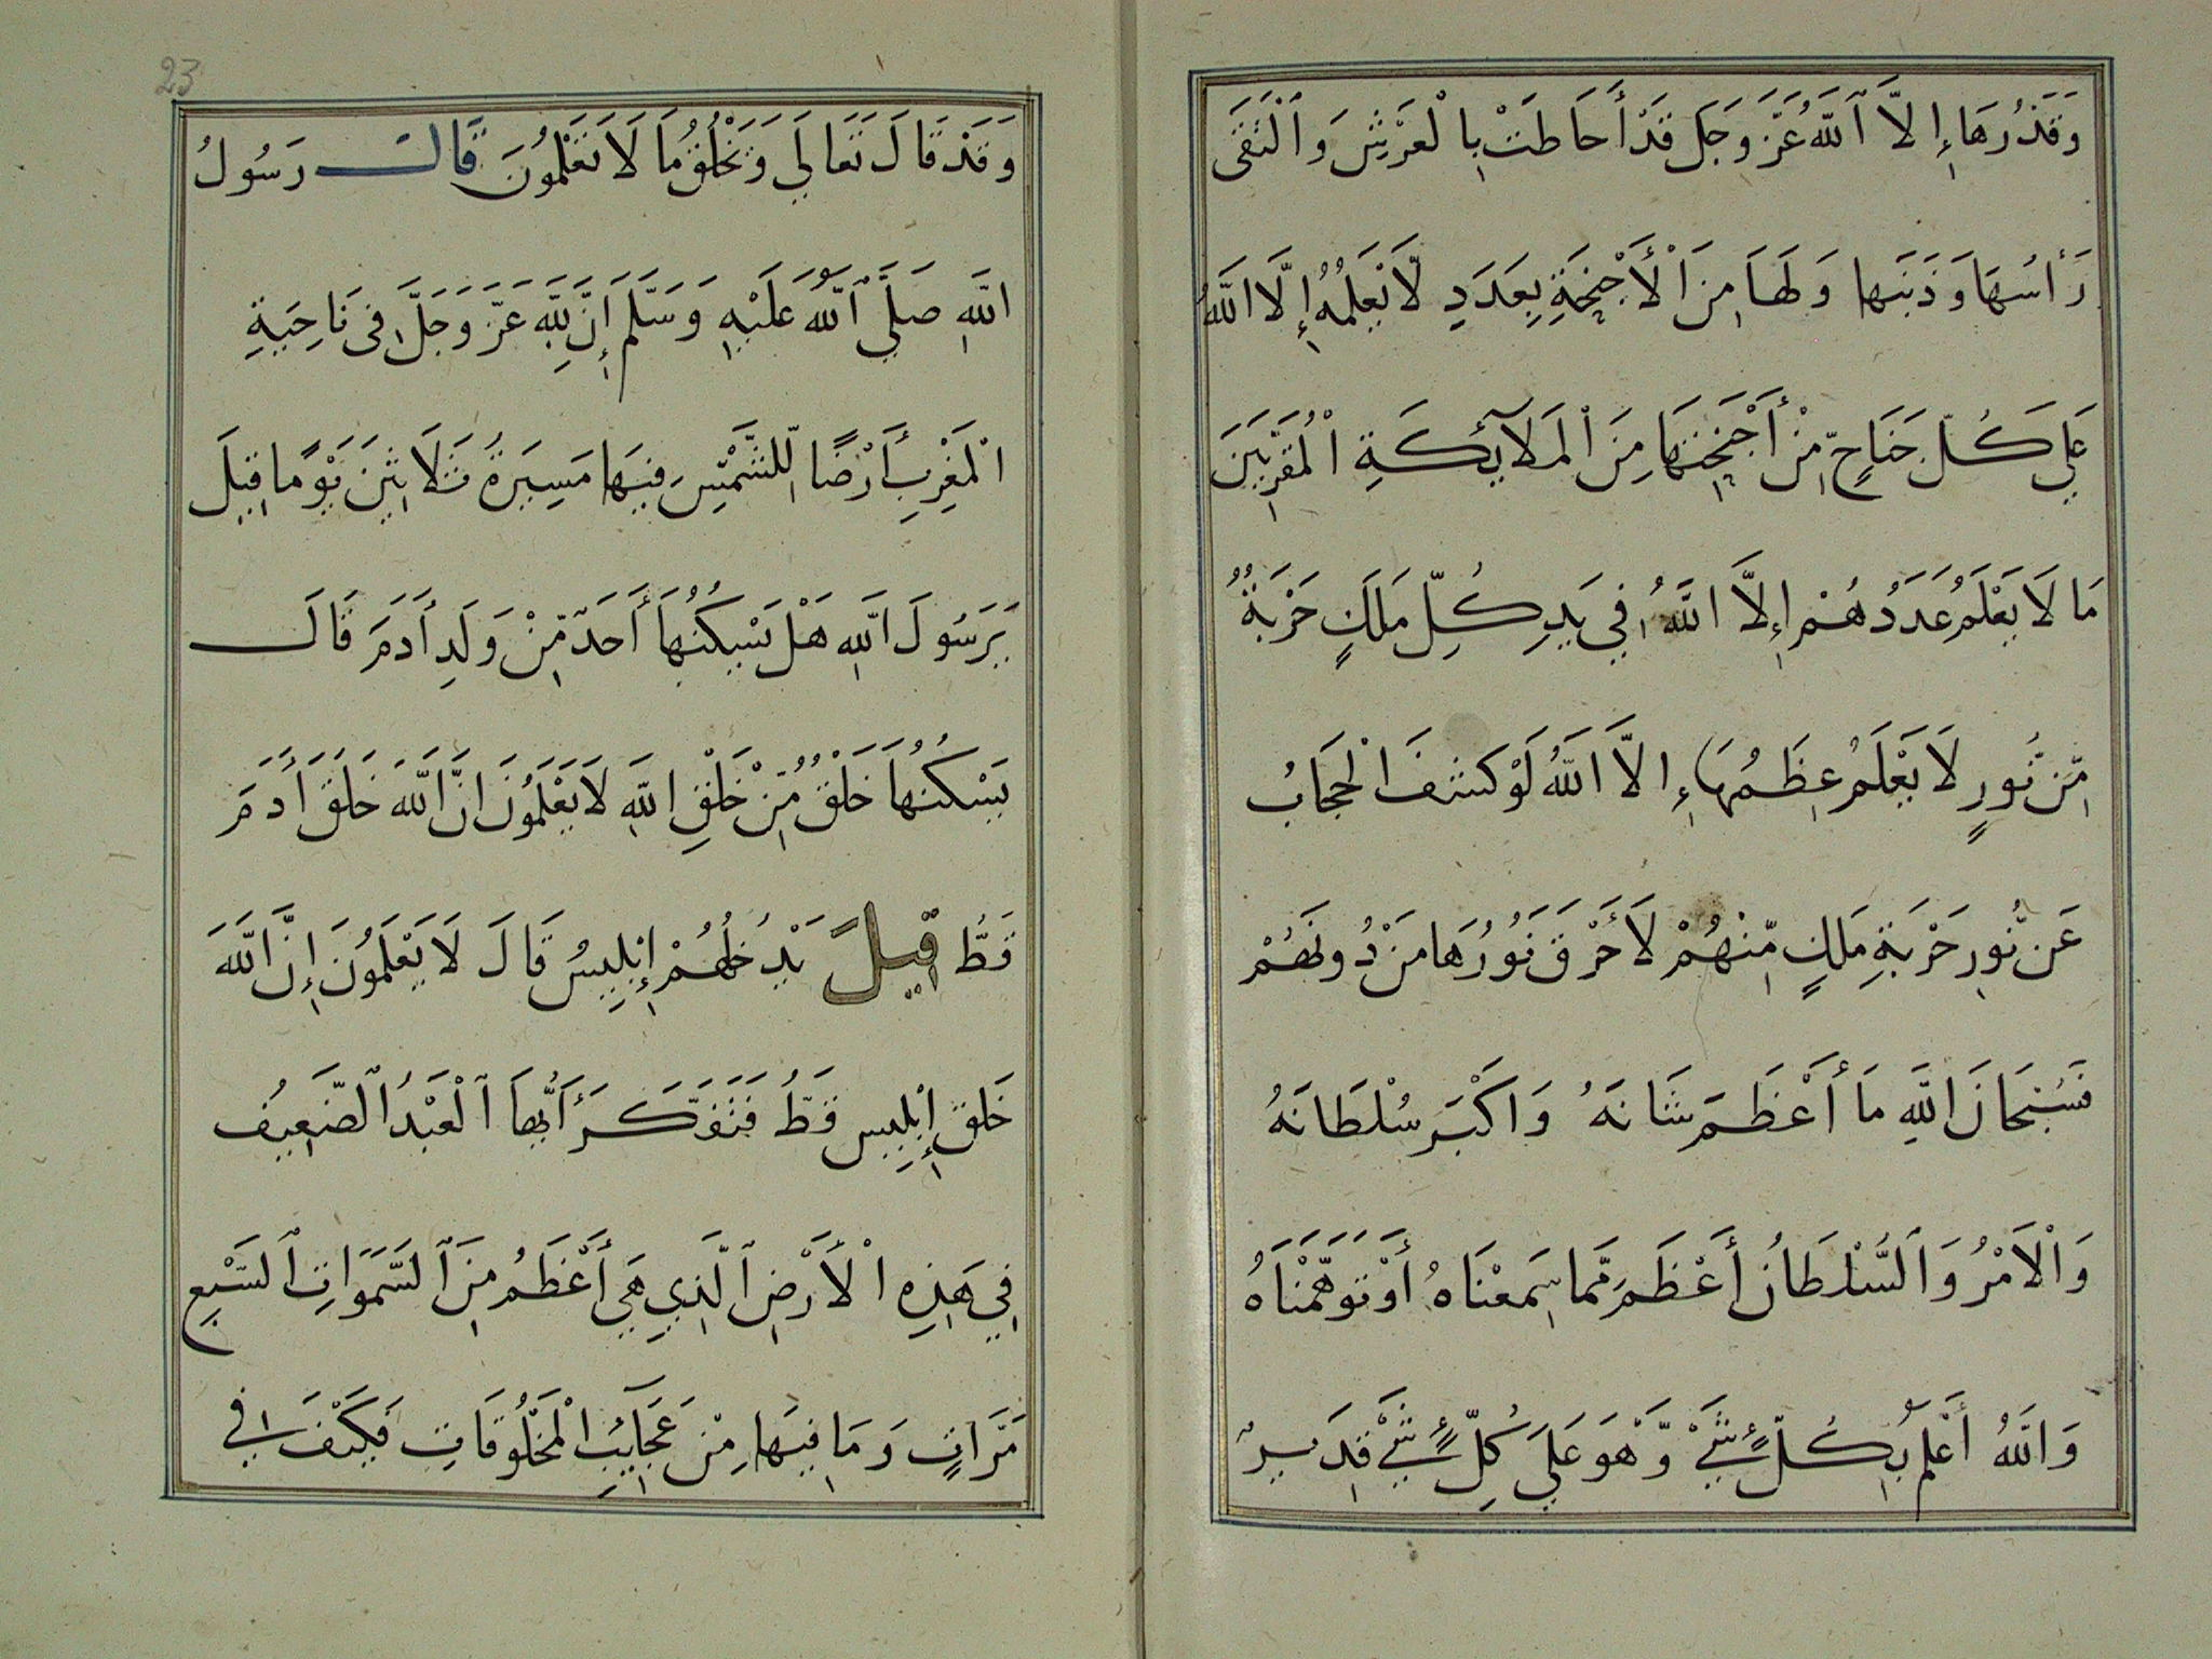 وَقَدْرُهَا إِلاَّ ٱللَّهُ عَزَّ وَجَلَ قَدْ أَحَاطَتْ بِالْعَرْشِ وَٱلْتَقَى
رَأْسُهَا وَذَنَبَها وَلَهَا مِنَ الْأَجْنِحَةِ بِعَدَدِ لَّا يَعْلَمُهُ إِلَّا اللَّهُ
عَلِي كُلّ جَنَاحٍ مِنْ أَجْنِحَتِهَا مِنَ الْمَلآئِكَةِ الْمُقَرَّبِينَ
مَا لَا يَعْلَمُ عَدَدُهُمْ إِلاَّ اللَّهُ فِي يَدِ كُلِّ مَلَكٍ حَرْبَةٌ
مِّن نُّورٍ لَا يَعْلَمُ عِظَمُهَا إِلاَّ اللَّهُ لَوْ كَشَفَ الْحِجَابُ
عَن نُّورِ حَرْبَةِ مَلَكٍ مِّنْهُمْ لَأَحْرَقَ نُورُهَا مَنْ دُونَهُمْ
فَسُبْحَانَ اللَّهِ مَا أَعْظَمَ شَانَهُ وَاَكْبَرَ سُلْطَانَهُ
وَالْاَمْرُ وَٱلسُّلْطَانُ أَعْظَمَ مِمَّا سَمِعْنَاهُ أَوْ تَوَهَّمْنَاهُ
وَاللَّهُ أَعْلَم بِكُلِّ شَيْءٍ وَّهُوَ عَلَي كُلِّ شَيْءٍ قَدِيرٌ
23
وَقَدْ قَالَ تَعَالَي وَيَخْلُقُ مَا لَا تَعْلَمُونَ قَالَ رَسُولُ
اللَّهِ صَلَّي ٱللَّهُ عَلَيْهِ وَسَلَّمَ إِنَّ لِلَّهِ عَزَّ وَجَلَّ فِى نَاحِيَةِ
الْمَغْرِبِ أَرْضًا لِّلشَّمْسِ فِيهَا مَسِيَرةُ ثَلَاثِينَ يَوْمًا قِيلَ
يَرَسُولَ اللَّهِ هَلْ يَسْكُنُهَا أَحَدٌ مِّنْ وَلَدِ أَدَمَ قَالَ
يَسْكُنُهَا خَلْقٌ مِّنْ خَلْقِ اللَّهِ لَا يَعْلَمُونَ انَّ اللَّهَ خَلَقَ أَدَمَ
قَطُّ قِيلَ يَدْخُلُهُمْ إِبْلِيسُ قَالَ لَا يَعْلَمُونَ إِنَّ اللَّهَ
خَلَقَ إِبْلِيس قَطُّ فَتَفَكَّرَ أَيُّهَا ٱلْعَبْدُ ٱلضَّعِيفُ
فِي هَذِهِ الْأَرْضِ ٱلَّذِي هِيَ أَعْظَمُ مِنَ ٱلسَّمَوَاتِ ٱلسَّبْعِ
مَرَّاتٍ وَمَا فِيهَا مِنْ عَجَآيِبِ الْمَخْلُوقَاتِ فَكَيْفَ فِي